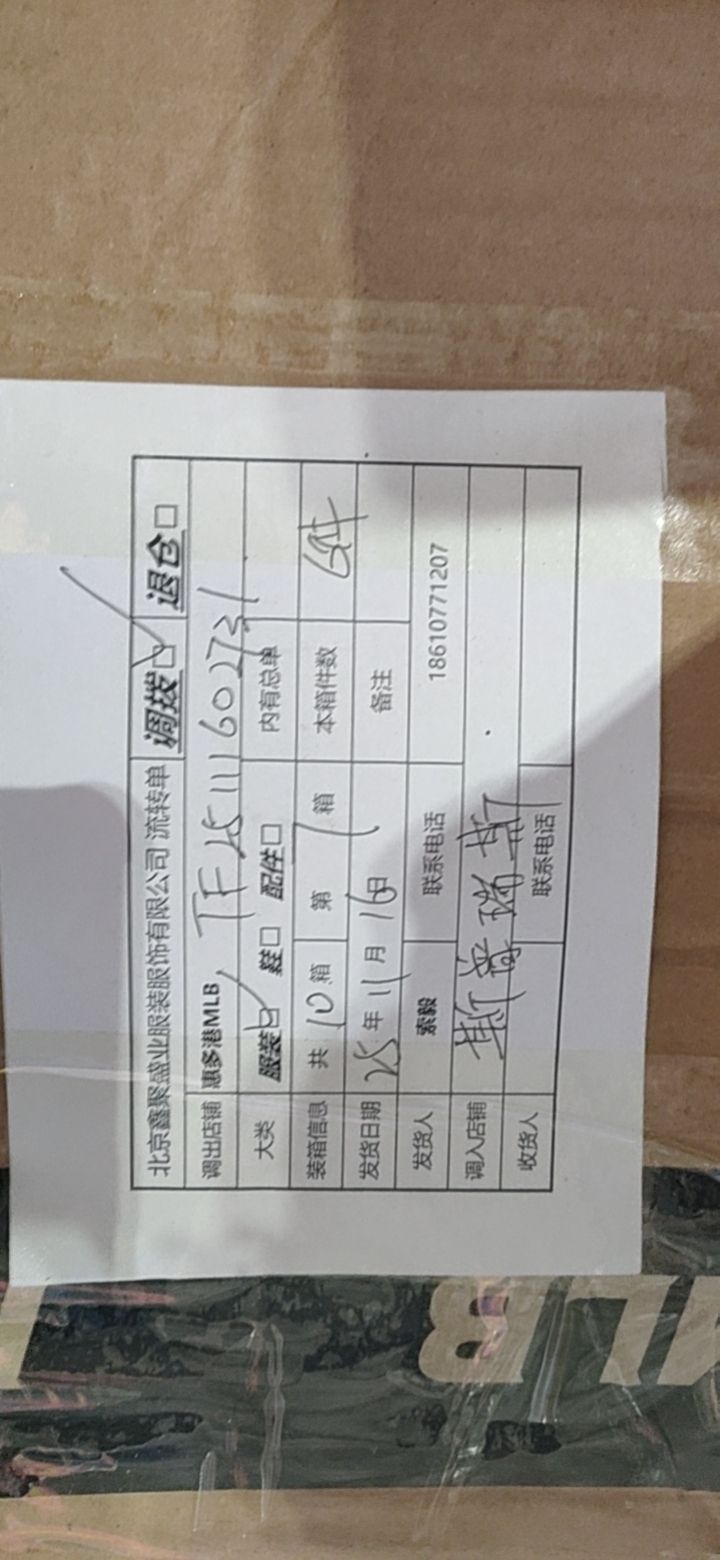 北京鑫聚盛业服装服饰有限公司 流转单 调拨☑ 退仓□
调出店铺 惠多港MLB TF25111602731
大类 服装☑ 鞋□ 配件□ 内有总单
装箱信息 共 10 箱 第 7 箱 本箱件数 6件
发货日期 25 年 11 月 16 日 备注
发货人 索毅 联系电话 18610771207
调入店铺
收货人 联系电话